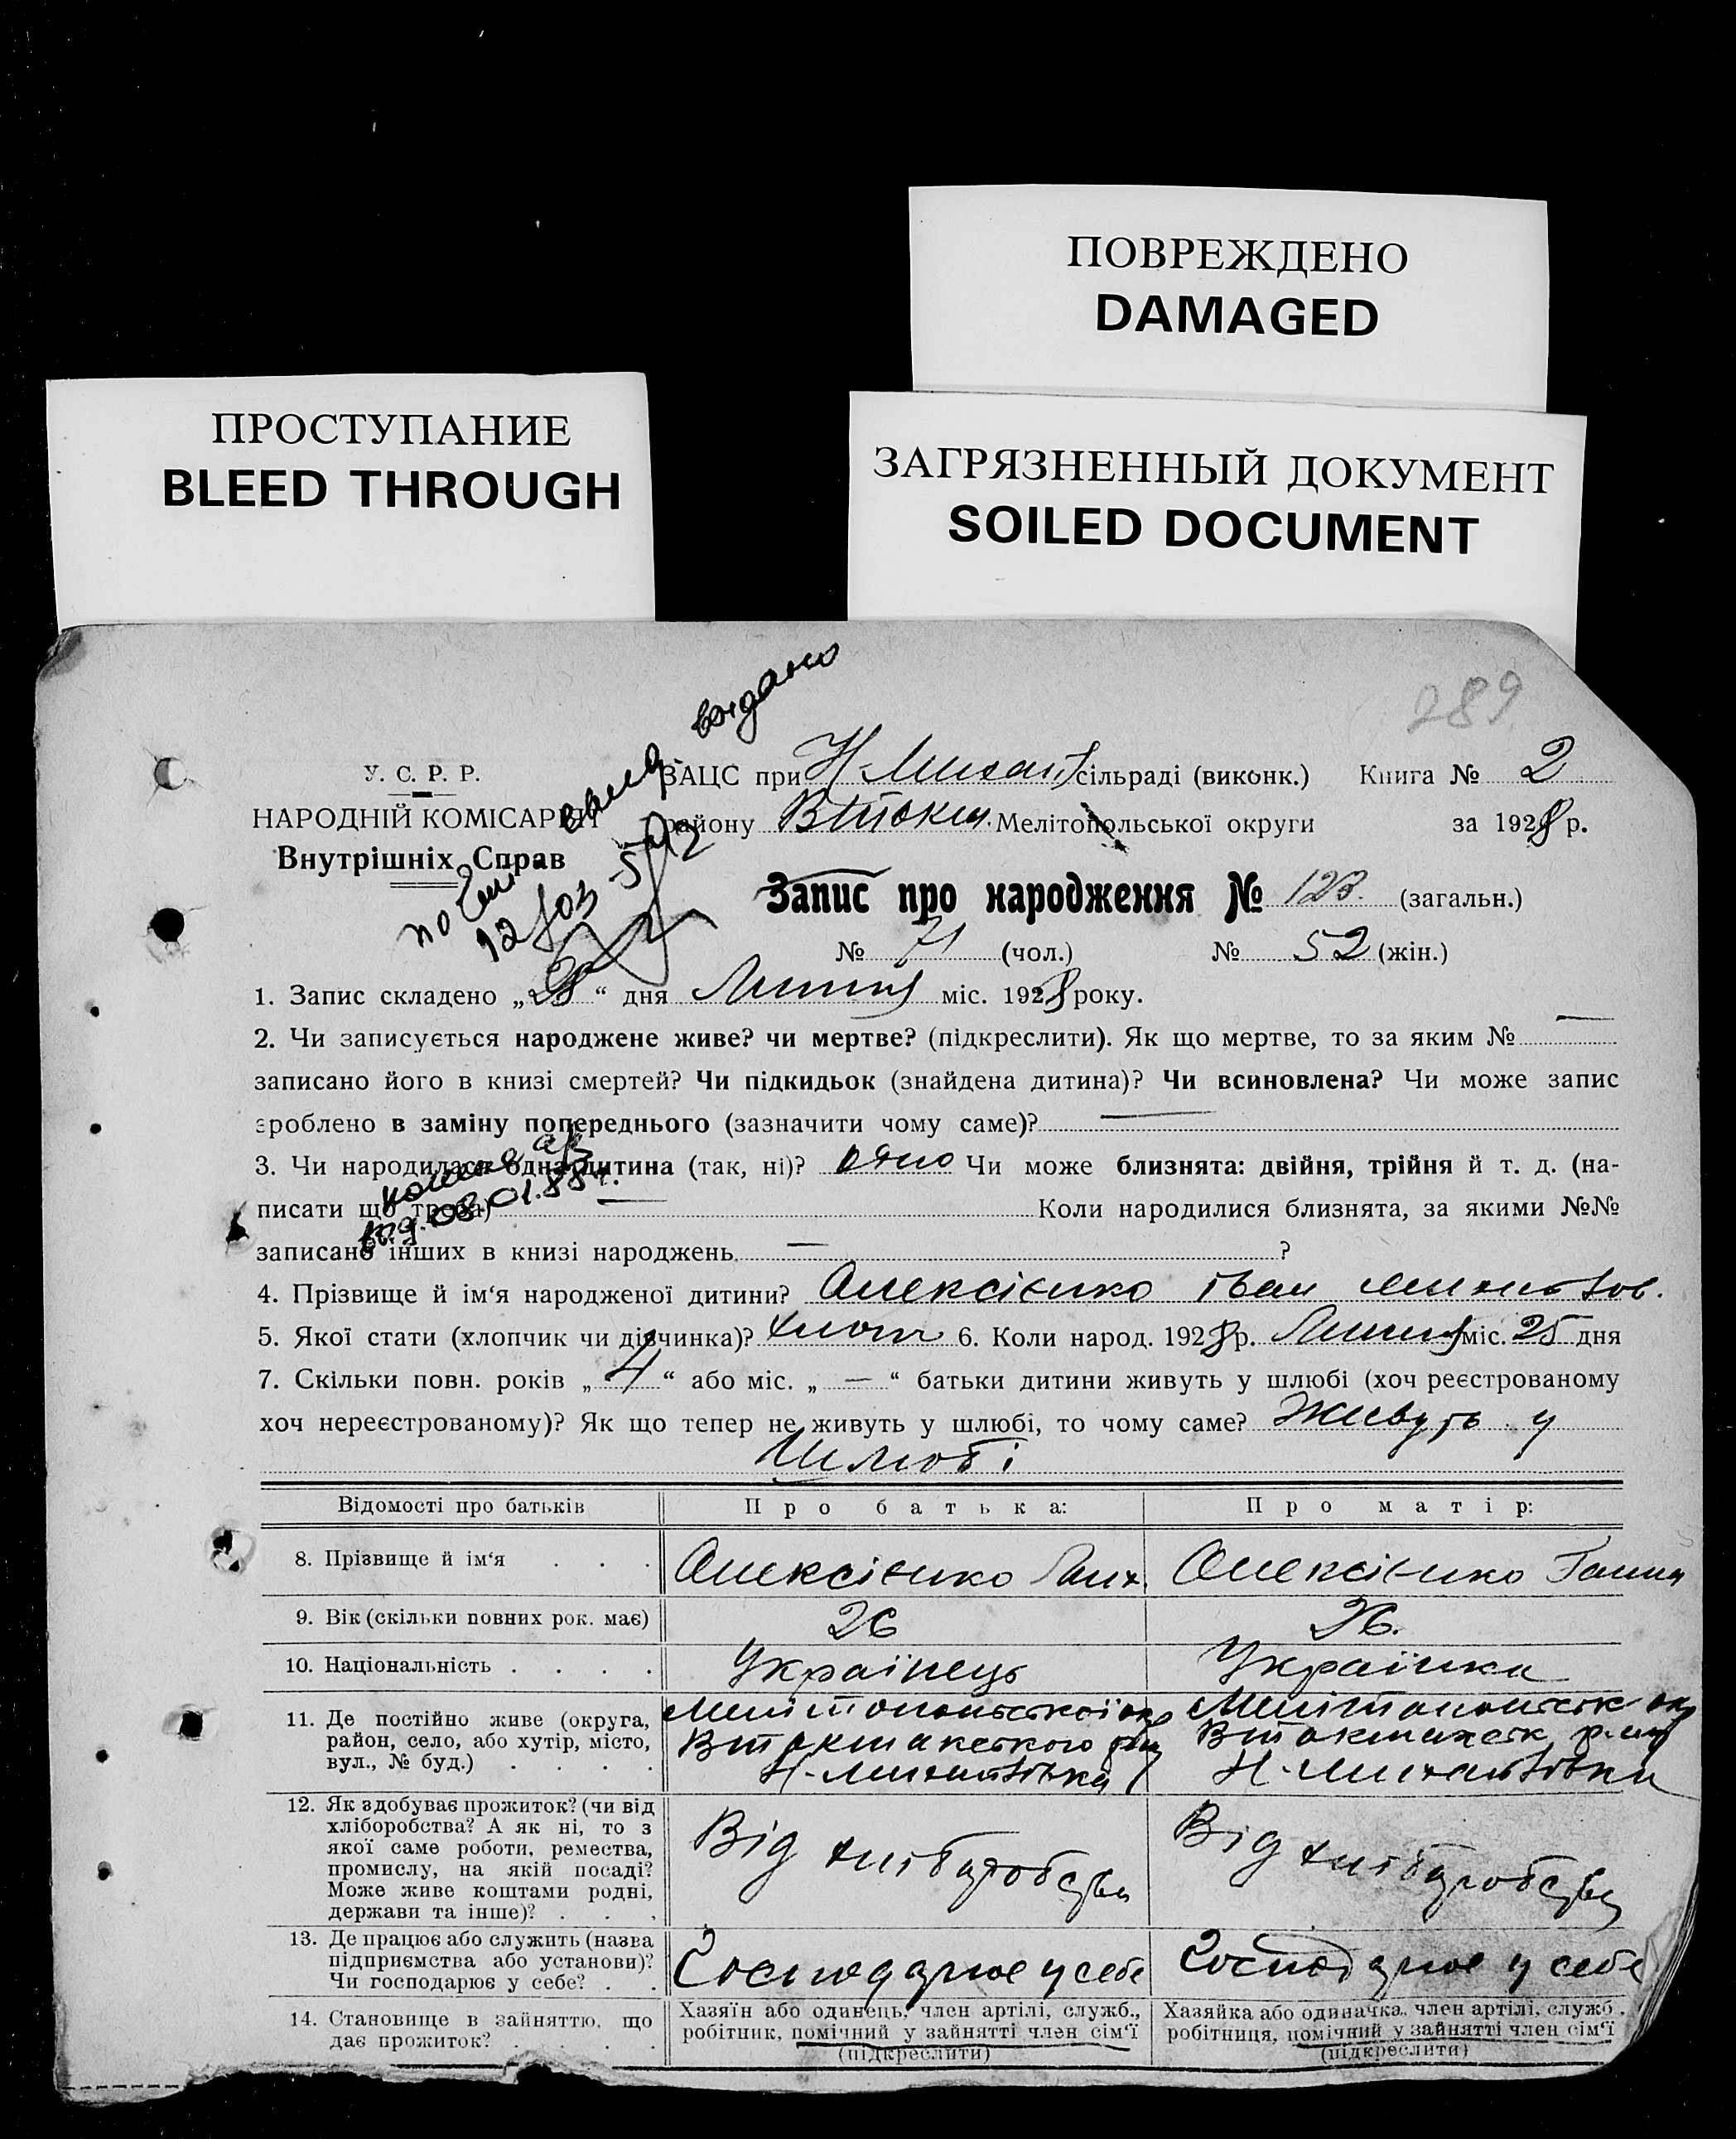 ПОВРЕЖДЕНО
DAMAGED
ПРОСТУПАНИЕ
BLEED THROUGH
ЗАГРЯЗНЕННЫЙ ДОКУМЕНТ
SOILED DOCUMENT
289
видано
У. С. Р. Р.
НАРОДНІЙ КОМІСАРІЯТ
Внутрішніх Справ
ЗАЦС при Н-Михайл сільраді (виконк.) Книга № 2
району Втокм. Мелітопольської округи за 1928 р.
Запис про народження № 123. (загальн.)
№ 71 (чол.) № 52 (жін.)
1. Запис складено „28“ дня Липня міс. 1928 року.
2. Чи записується народжене живе? чи мертве? (підкреслити). Як що мертве, то за яким № —
записано його в книзі смертей? Чи підкидьок (знайдена дитина)? Чи всиновлена? Чи може запис
зроблено в заміну попереднього (зазначити чому саме)? —
3. Чи народилася одна дитина (так, ні)? одно Чи може близнята: двійня, трійня й т. д. (на-
писати що треба) — Коли народилися близнята, за якими №№
записано інших в книзі народжень — ?
копия
08.01.88г.
4. Прізвище й ім‘я народженої дитини? Олексієнко Іван Михайлов.
5. Якої стати (хлопчик чи дівчинка)? хлоп 6. Коли народ. 1928 р. Липня міс. 25 дня
7. Скільки повн. років „4“ або міс. „ — “ батьки дитини живуть у шлюбі (хоч реєстрованому
хоч нереєстрованому)? Як що тепер не живуть у шлюбі, то чому саме? Живуть у
Шлюбі
Відомості про батьків Про батька: Про матір:
8. Прізвище й ім‘я . . . Олексієнко Мих. Олексієнко Ганна
9. Вік (скільки повних рок. має) 26 26.
10. Національність . . . . Українець Українка
11. Де постійно живе (округа,
район, село, або хутір, місто,
вул., № буд.) . . . .
Мелітопольської окр
Втокмакського р-ну
Н-Михайлівка
Мелітопольськ окр
Втокмакськ р-ну
Н-Михайлівка
12. Як здобуває прожиток? (чи від
хліборобства? А як ні, то з
якої саме роботи, ремества,
промислу, на якій посаді?
Може живе коштами родні,
держави та інше)? . . .
Від хліборобства
Від хліборобства
13. Де працює або служить (назва
підприємства або установи)?
Чи господарює у себе? . .
Господарює у себе
Господарює у себе
14. Становище в зайняттю, що
дає прожиток? . . . .
Хазяїн або одинець, член артілі, служб.,
робітник, помічний у зайнятті член сім‘ї
(підкреслити)
Хазяйка або одиначка, член артілі, служб.
робітниця, помічний у зайнятті член сім‘ї
(підкреслити)